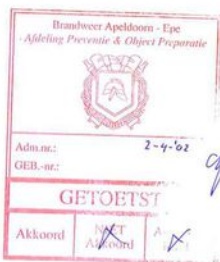 Brandweer Apeldoorn - Epe
- Afdeling Preventie & Object Preparatie
Adm.nr.: 2-4-'02
GEB.-nr.:
GETOETST
Akkoord NIET Akkoord